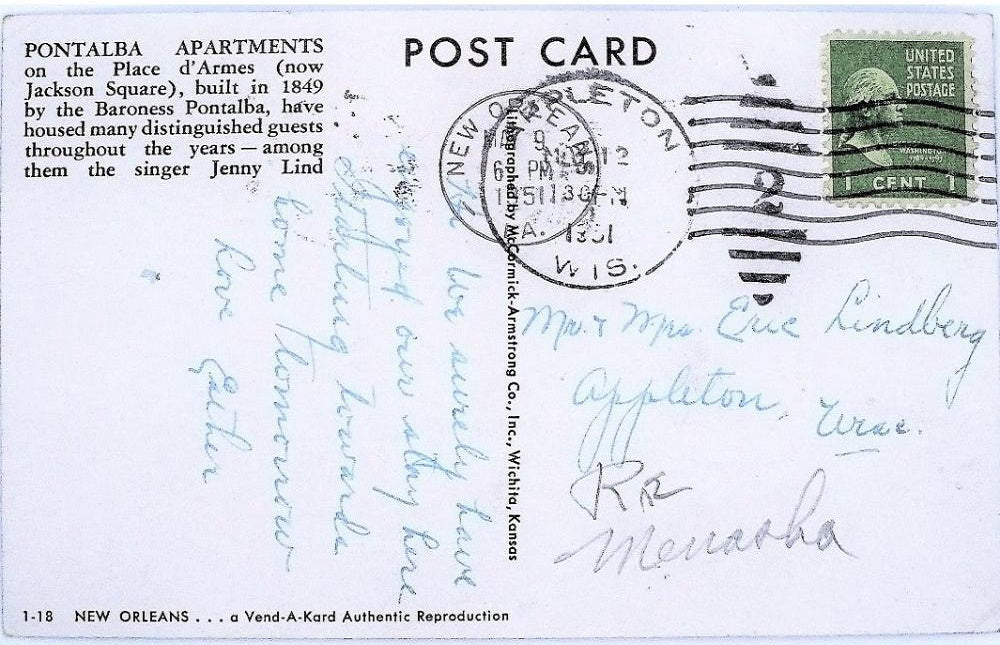 PONTALBA APARTMENTS
on the Place d'Armes (now
Jackson Square), built in 1849
by the Baroness Pontalba, have
housed many distinguished guests
throughout the years — among
them the singer Jenny Lind
POST CARD
NEW ORLEANS
9
6 PM
1951
LA.
APPLETON
12
1 30 PM
1951
WIS.
UNITED
STATES
POSTAGE
WASHINGTON
1 CENT 1
We surely have
enjoyed our stay here
Starting towards
home tomorrow
Love Esther
Lithographed by McCormick-Armstrong Co., Inc., Wichita, Kansas
Mr. & Mrs. Eric Lindberg
Appleton,
Wisc.
RR
Menasha
1-18 NEW ORLEANS . . . a Vend-A-Kard Authentic Reproduction